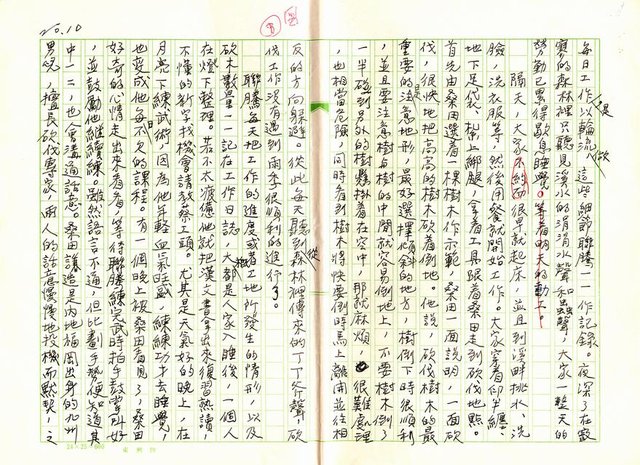 No.10
每日工作以輪流,這些細節聯騰一一作記錄。夜深了在寂
寞的森林裡只聽見溪水的涓涓水聲和虫聲,大家一整天的
勞動已累得歇息睡覺。等着明天的動工。
隔天,大家不約而很早就起床,並且到溪畔挑水、洗
臉,洗衣服等,然後用餐就開始工作。大家穿着
地下足袋,紮上綁腿,拿着工具跟着桑田走到砍伐地點。
首先由桑田選着一棵樹木作示範,桑田一面說明,一面砍
伐,很快地把高高的樹木砍着倒地。他說,砍伐樹木的最
重要的是注意地形,最好選擇傾斜的地方,樹倒下時很順利
,並且要注意樹與樹的中間空間就容易倒地上,不要樹木倒了
一半碰到另外的樹懸掛着在空中,那就麻煩,很難處理
,也相當危險,同時看到樹木將快要倒時馬上離開並往相
反的方向躲避。從此每天聽到從森林裡傳來的丁丁斧聲,砍
伐工作沒有遇到雨季很順利的進行了。
聯騰每天把工作的進度或者工地所發生的情形,以及
砍木數量一一記在工作日誌,大都是人家入睡後,一個人
在燈下整理。若不太疲倦他就把漢文書拿出來復習熟讀,
不懂的新字找機會請教蔡工頭。尤其是天氣好的晚上,在
月亮下練武術,因為他年輕血氣旺盛,練練功才去睡覺,
也變成他每日不欠的課程。有一個晚上被桑田看見了,桑田
好奇的心情走出來看看,等待聯騰練完武時拍手鼓掌叫好
,並鼓勵他繼續練。雖然語言不通,但比劃手勢便知道其
中一二,也會溝通話意。桑田講這是內地福岡出身的九州
男兒,擅長砍伐專家,兩人的許意慢慢地投機而默契,之